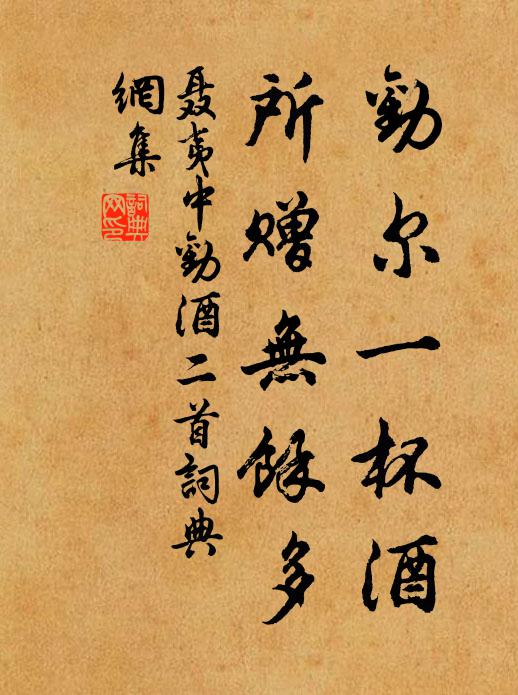 勸尔一杯酒
所赠無餘多
聂夷中勸酒二首詞典
網集
詞典网印